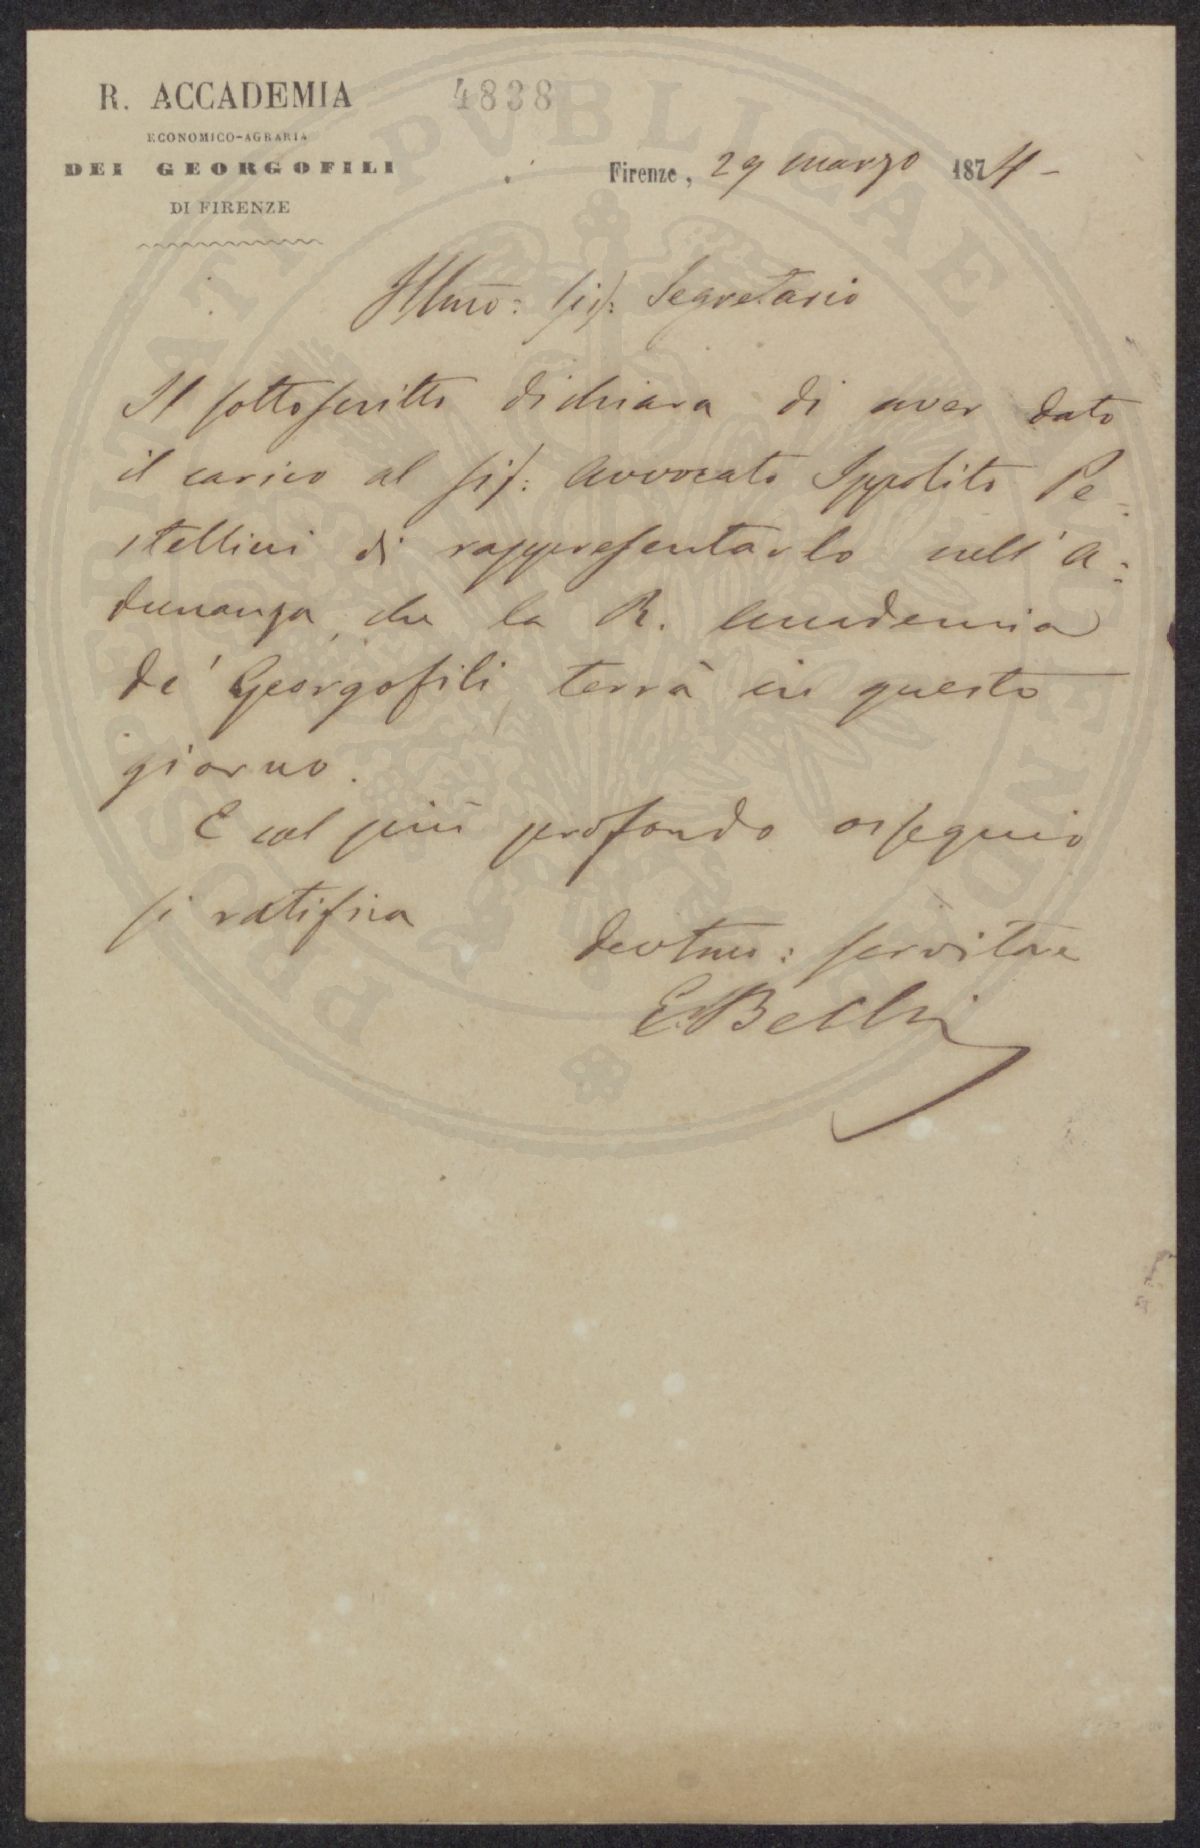 R. ACCADEMIA
ECONOMICO-AGRARIA
DEI GEORGOFILI
DI FIRENZE
4838
Firenze, 29 marzo 1874 -
Illmo: Sig: Segretario
Il sottoscritto dichiara di aver dato
il carico al Sig: Avvocato Ippolito Pe-
stellini di rappresentarlo nell'A-
dunanza che la R. Accademia
de' Georgofili terrà in questo
giorno.
E col più profondo ossequio
si ratifica
devtmo: servitore
E. Bechi
PROSPERITATI PUBLICAE AUGENDAE